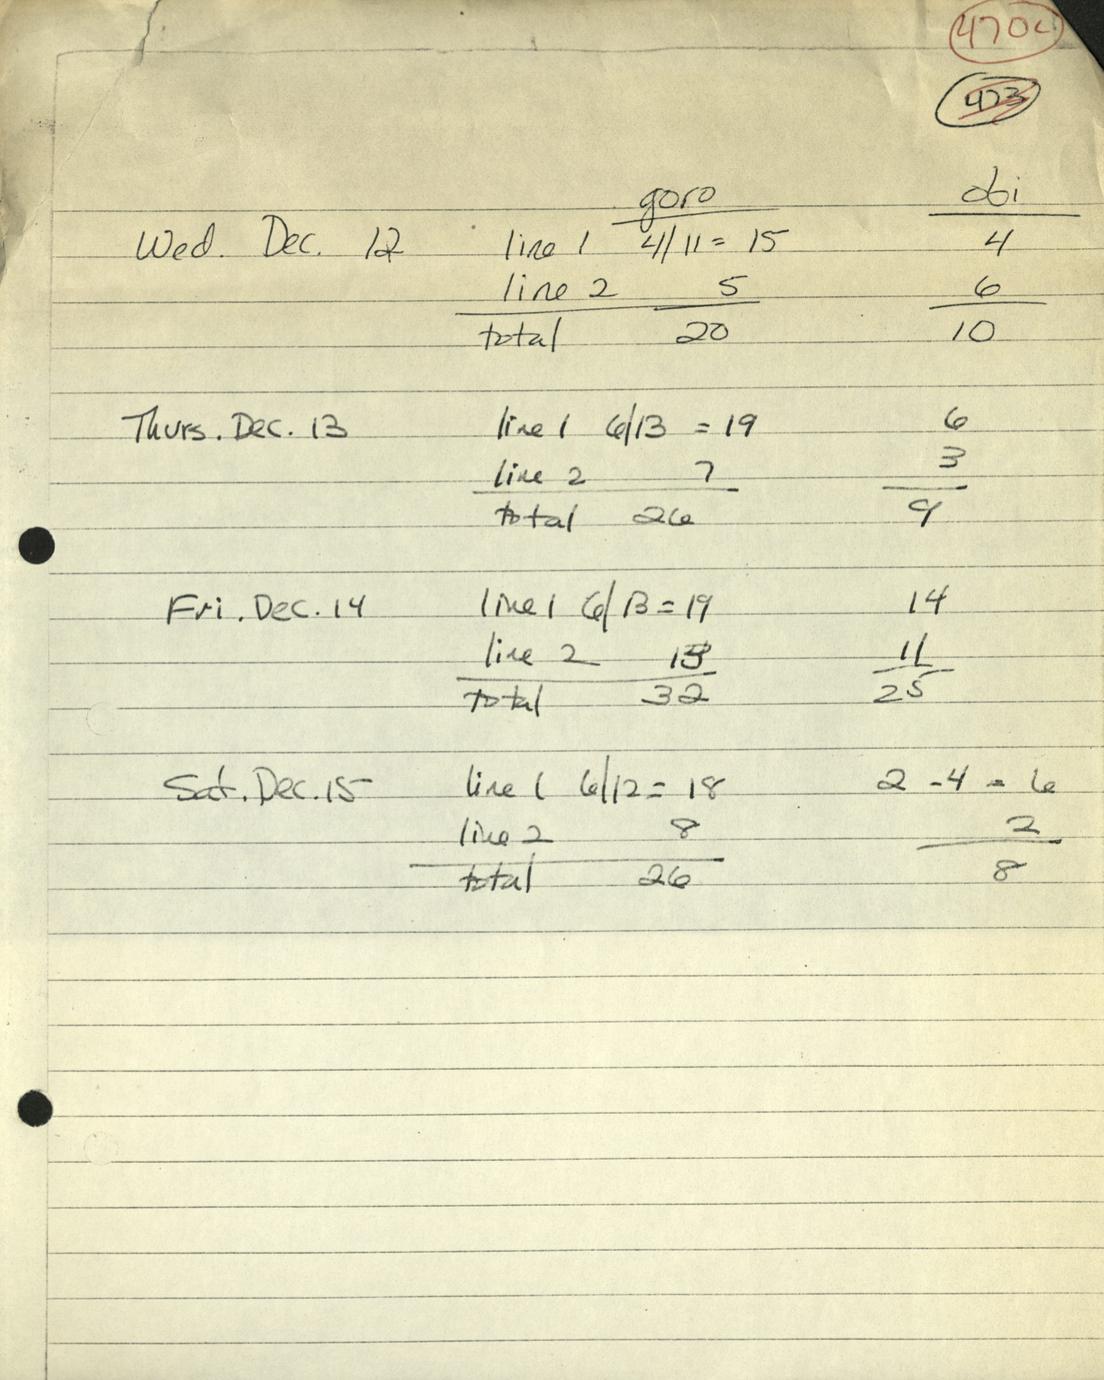 470c
473
goro obi
Wed. Dec. 12 line 1 4/11 = 15 4
line 2 5 6
total 20 10
Thurs. Dec. 13 line 1 6/13 = 19 6
line 2 7 3
total 26 9
Fri. Dec. 14 line 1 6/13 = 19 14
line 2 13 11
total 32 25
Sat. Dec. 15 line 1 6/12 = 18 2 - 4 = 6
line 2 8 2
total 26 8